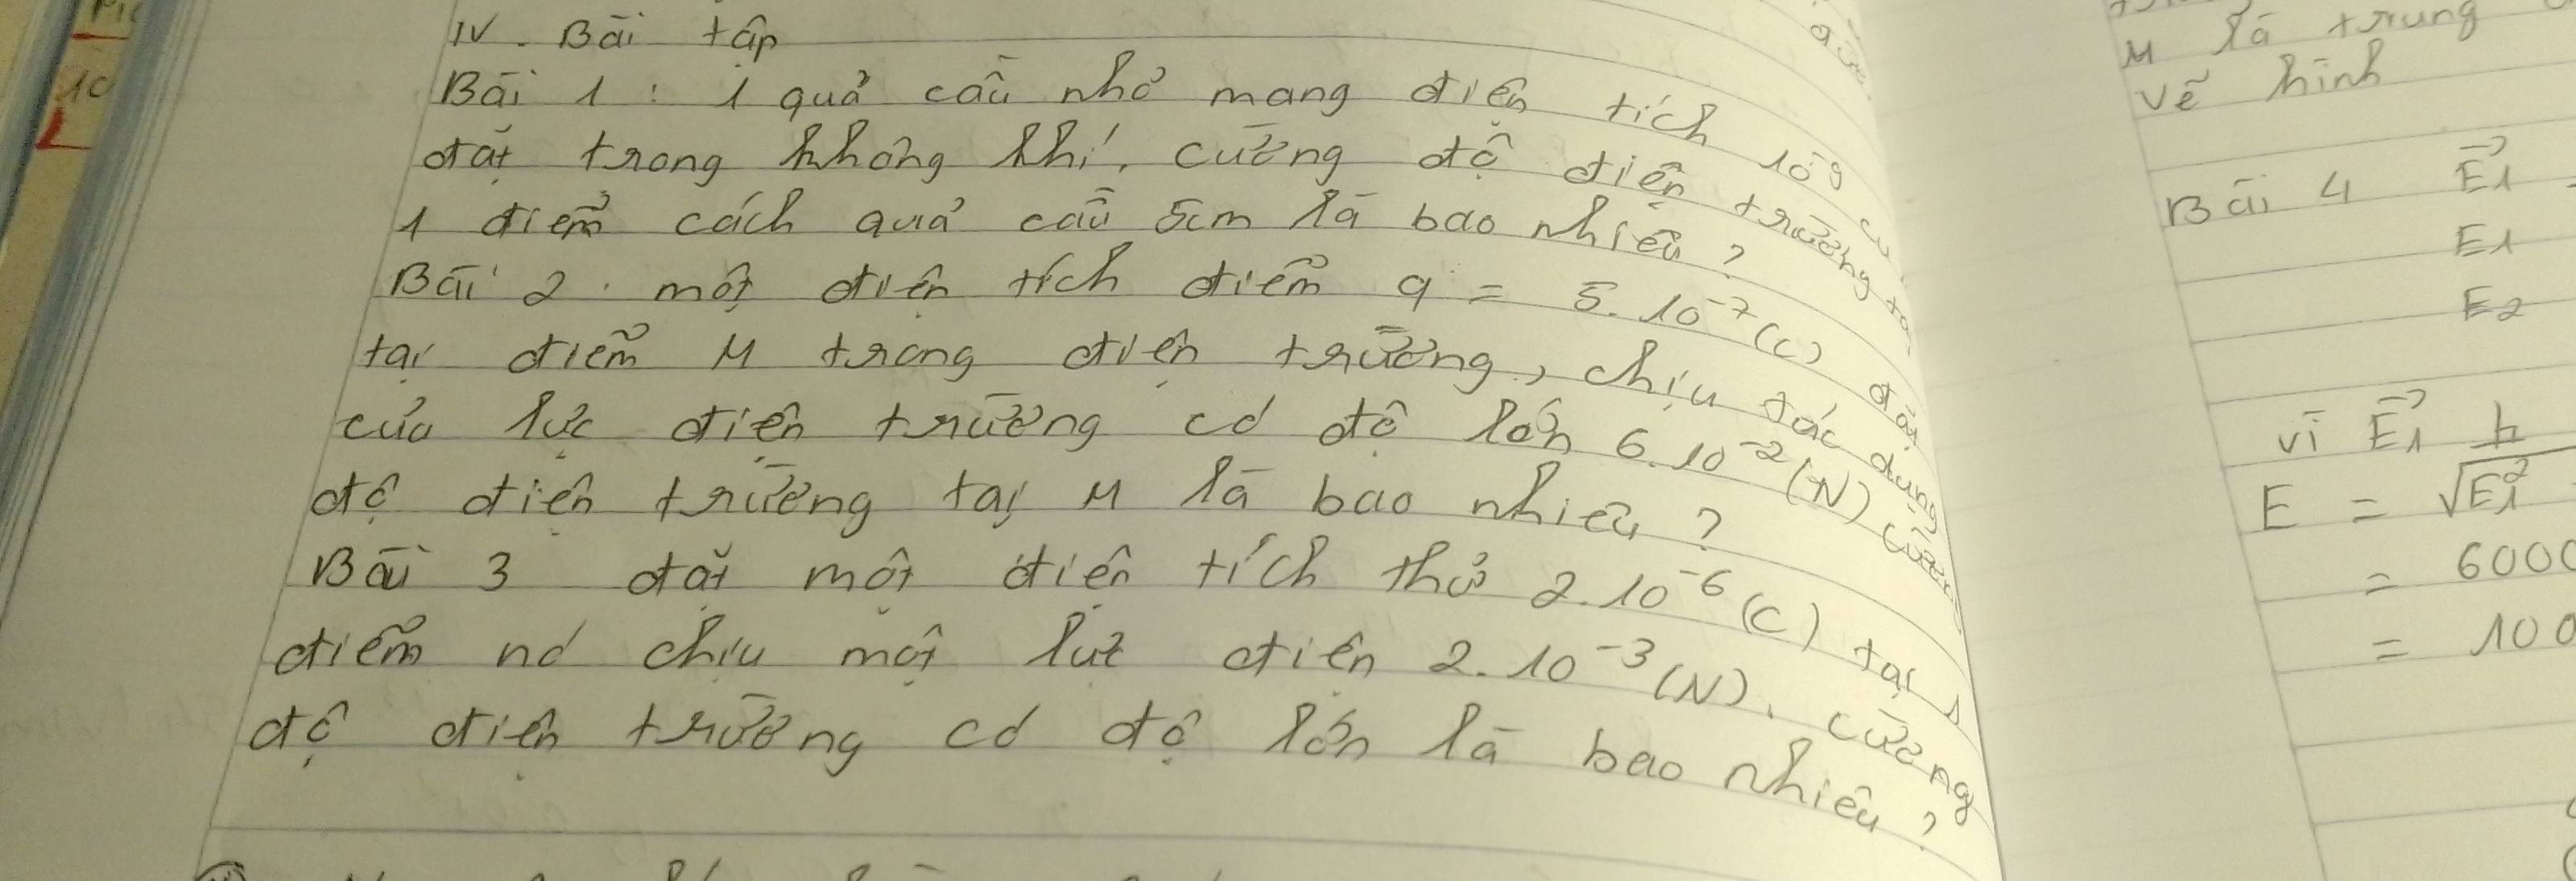 IV. Bài tập
Bài 1 : 1 quả cầu nhỏ mang điện tích
đặt trong không khí, cường độ điện trường tại
1 điểm cách quả cầu 5cm là bao nhiêu ?
Bài 2 . một điện tích điểm q = 5.10⁻⁷ (C) đặt
tại điểm M trong điện trường, chịu tác dụng
của lực điện trường có độ lớn 6.10⁻² (N) cường
độ điện trường tại M là bao nhiêu ?
Bài 3 đặt một điện tích thử 2.10⁻⁶ (C) tại 1
điểm nó chịu một lực điện 2.10⁻³ (N). cường
độ điện trường có độ lớn là bao nhiêu ?
M là trung
vẽ hình
Bài 4 E⃗1
E1
E2
vì E⃗1
E = √E1²
= 6000
= 100
10